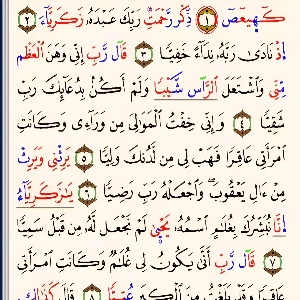 كٓهيعٓصٓ ١ ذِكْرُ رَحْمَتِ رَبِّكَ عَبْدَهُۥ زَكَرِيَّآ ٢
إِذْ نَادَىٰ رَبَّهُۥ نِدَآءً خَفِيًّا ٣ قَالَ رَبِّ إِنِّى وَهَنَ ٱلْعَظْمُ
مِنِّى وَٱشْتَعَلَ ٱلرَّأْسُ شَيْبًا وَلَمْ أَكُنۢ بِدُعَآئِكَ رَبِّ
شَقِيًّا ٤ وَإِنِّى خِفْتُ ٱلْمَوَٰلِىَ مِن وَرَآءِى وَكَانَتِ
ٱمْرَأَتِى عَاقِرًا فَهَبْ لِى مِن لَّدُنكَ وَلِيًّا ٥ يَرِثُنِى وَيَرِثُ
مِنْ ءَالِ يَعْقُوبَ ۖ وَٱجْعَلْهُ رَبِّ رَضِيًّا ٦ يَٰزَكَرِيَّآ
إِنَّا نُبَشِّرُكَ بِغُلَٰمٍ ٱسْمُهُۥ يَحْيَىٰ لَمْ نَجْعَل لَّهُۥ مِن قَبْلُ سَمِيًّا
٧ قَالَ رَبِّ أَنَّىٰ يَكُونُ لِى غُلَٰمٌ وَكَانَتِ ٱمْرَأَتِى
عَاقِرًا وَقَدْ بَلَغْتُ مِنَ ٱلْكِبَرِ عِتِيًّا ٨ قَالَ كَذَٰلِكَ